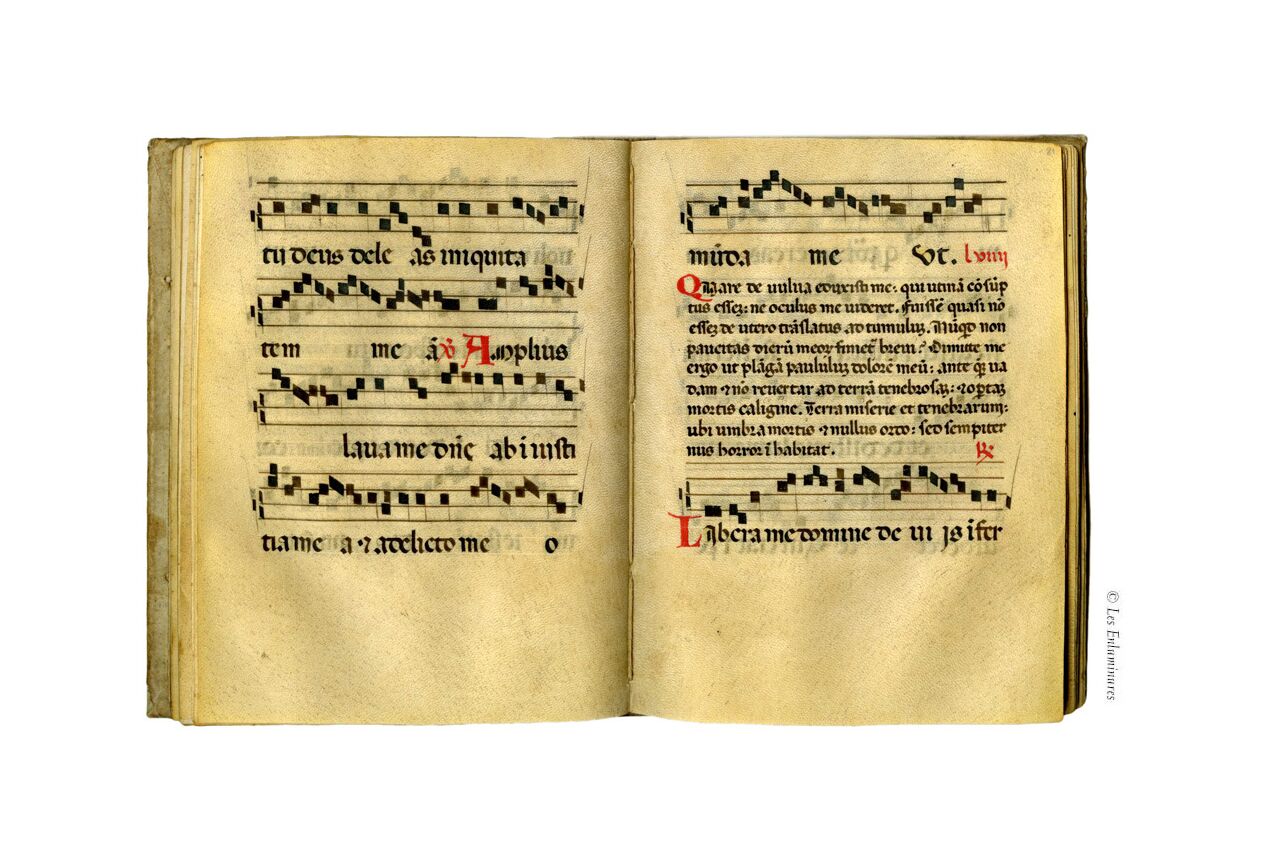 tu deus dele as iniquita
tem me a ℣ Amplius
lava me dn̄e ab iniusti
tia mea ⁊ a delicto me o
mūda me Ut. lviiij
Quare de uulua eduxisti me: qui utinā cōsūp
tus essez: ne oculus me uideret. Fuissē quasi nō
essez de utero trāslatus ad tumuluz. Nūqd non
paucitas dierū meoꝝ finiet̄ breui? Dimitte me
ergo ut plāgā paululuz dolorē meū: ante qꝫ ua
dam ⁊ nō reuertar ad terrā tenebrosaz: ⁊ optaz
mortis caligine. Terra miserie et tenebrarum:
ubi umbra mortis ⁊ nullus ordo: sed sempiter
nus horror īhabitat. ℟
Libera me domine de ui is īfer
© Les Enluminures